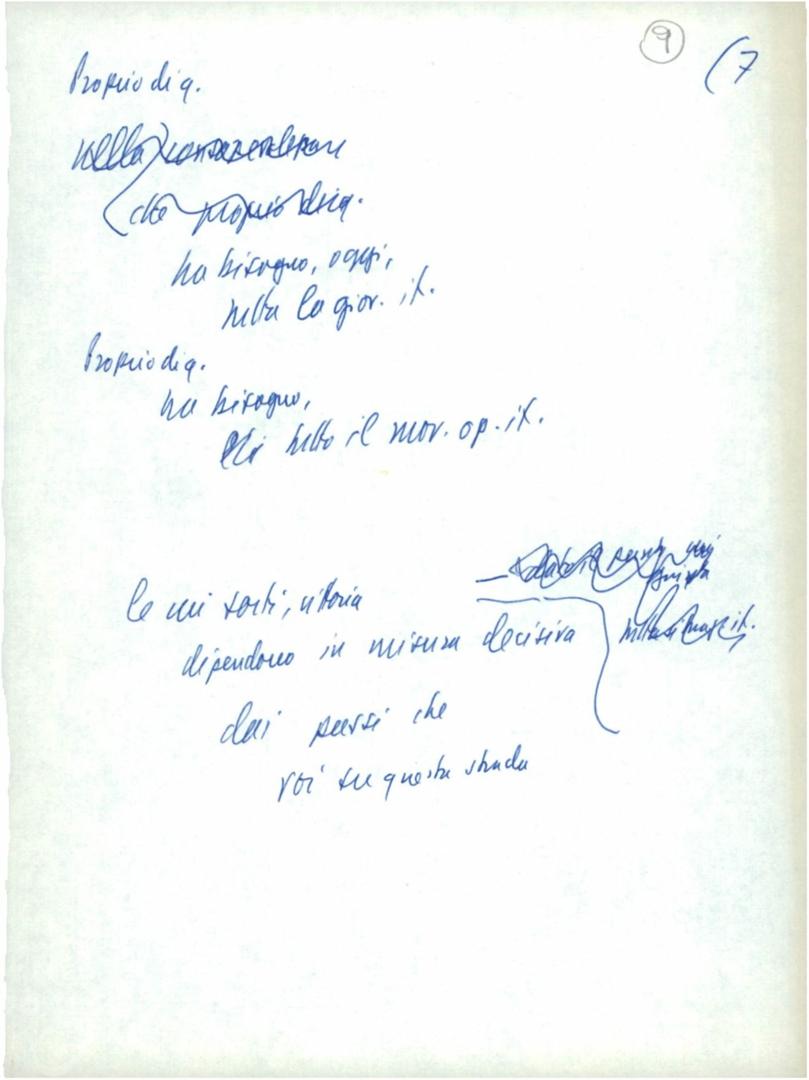 9
(7
Proprio di q.
nella consapevolezza
(che proprio di q.
ha bisogno, oggi,
tutta la giov. it.
Proprio di q.
ha bisogno,
tutto il mov. op. it.
le cui sorti, vittoria
dipendono in misura decisiva
dai passi che
voi su questa strada